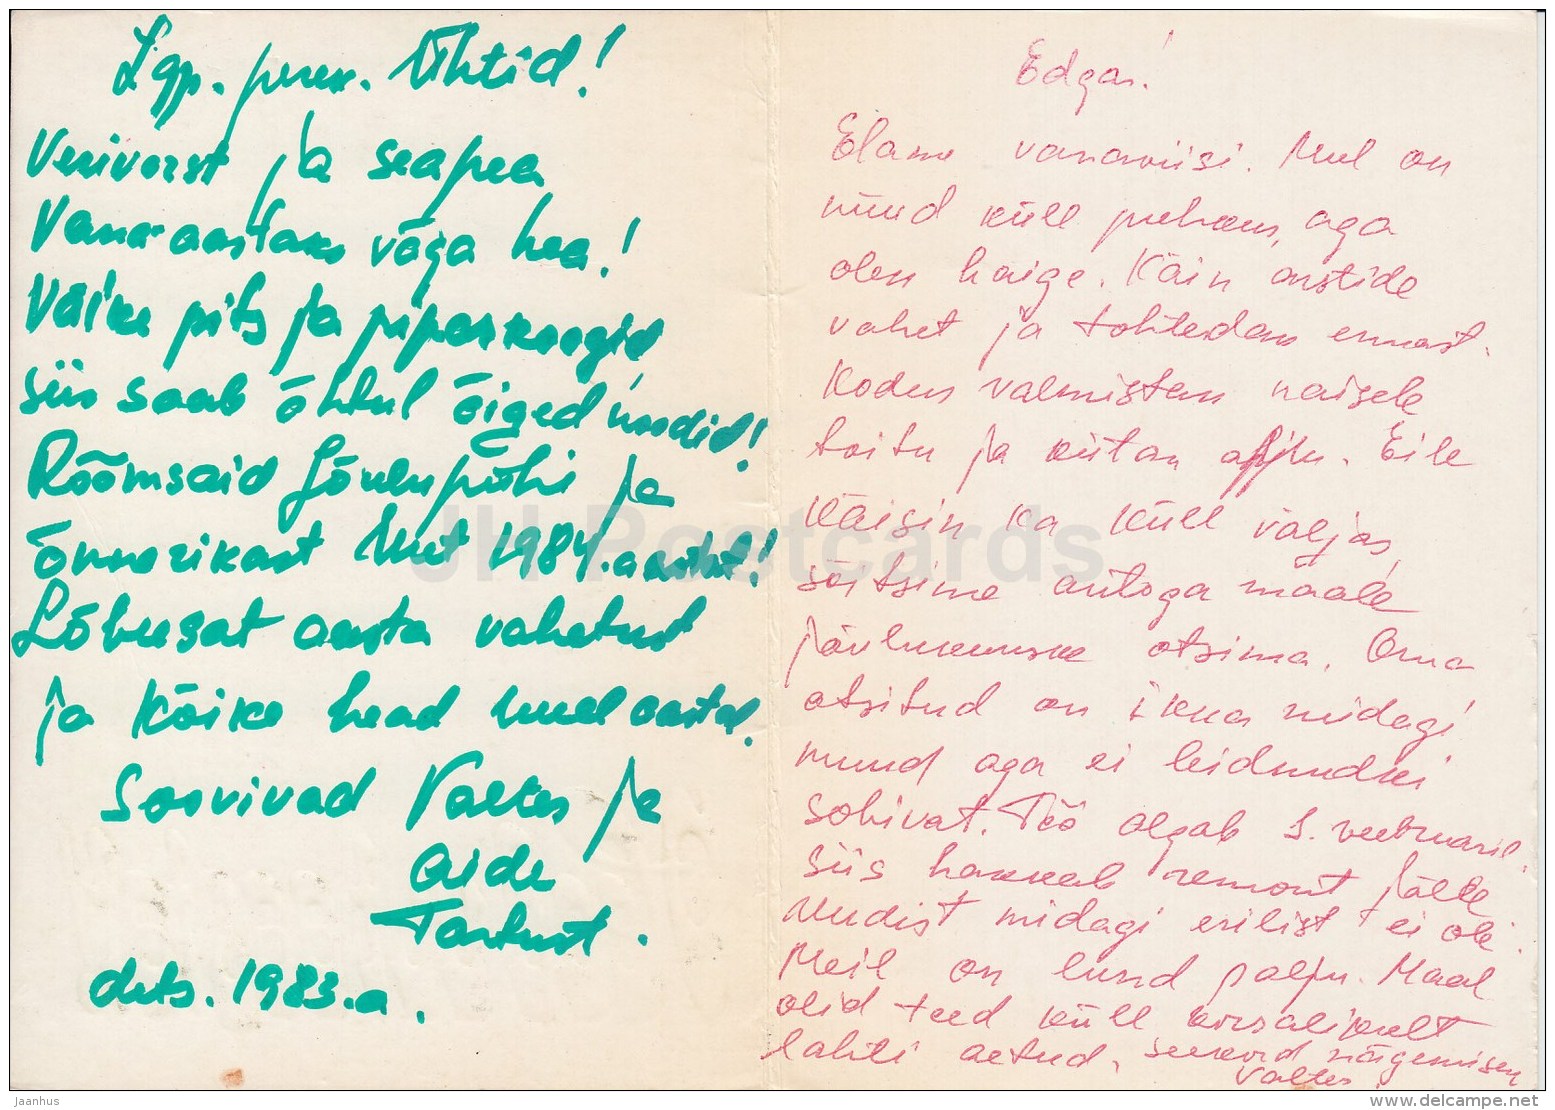 Lgp. perek. Ühtid!
Verivorst ja seapea
Vana-aastaks väga hea!
Väike pits ja piparkoogid
siis saab õhtul õiged moodid!
Rõõmsaid Jõulupühi ja
õnnerikast Uut 1984.aastat!
Lõbusat aasta vahetust
ja kõike head uuel aastal.
Soovivad Valter ja
Aide
Tartust.
dets. 1983.a.
Edgar!
Elame vanaviisi. Mul on
nüüd küll puhkus, aga
olen haige. Käin arstide
vahet ja tohterdan ennast.
Kodus valmistan naisele
toitu ja kütan ahju. Eile
käisin ka küll väljas,
sõitsime autoga maale
jõulukuuske otsima. Oma
otsitud on ikka midagi
muud aga ei leidnudki
sobivat. Töö algab 1. veebruaril.
siis hakkab remont jälle
Uudist midagi erilist ei ole.
Meil on lund palju. Maal
olid teed küll korralikult
lahti aetud. seekord nägemiseni
Valter.
JH Postcards
Jaanhus
www.delcampe.net